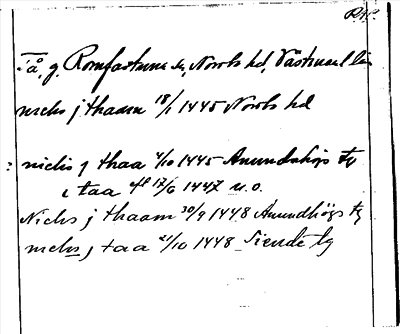 Tå, g. Romfartuna sn, Norrbo hd, Västmanl. län
niclis j thaam 18/1 1445 Norrbo hd
: niclis j thaa 4/10 1445 Anundshögs tg
i taa 17/6 1447 u.o.
Niclis j thaam 30/9 1448 Anundhögs tg
niclis j taa 21/10 1448 Siende tg